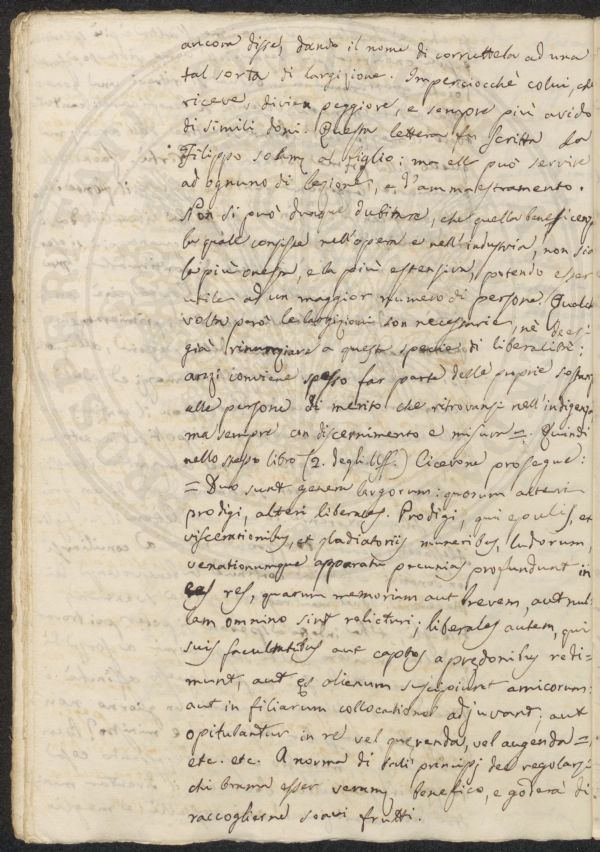 ancora disse, dando il nome di corruttela ad una
tal sorta di largizione. Imperciocchè colui, che
riceve, divien peggiore, e sempre più avido
di simili doni. Questa lettera fu scritta da
Filippo solam al figlio: ma ell può servire
ad ognuno di lezione, e d'ammaestramento.
Non si può dunque dubitare, che quella beneficenza
la quale consiste nell'opera e nell'industria, non sia
la più onesta, e la più estensiva, potendo esser
utile ad un maggior numero di persone. Qualche
volta però le largizioni son necessarie, nè deesi
già rinunziare a questa specie di liberalità;
anzi conviene spesso far parte delle proprie sostanze
alle persone di merito che ritrovansi nell'indigenza
ma sempre con discernimento e misura =. Quindi
nello stesso libro (2. degli Uff.) Cicerone prosegue:
= Duo sunt genera largorum: quorum alteri
prodigi, alteri liberales. Prodigi, qui epulis, et
viscerationibus, et gladiatoriis muneribus, ludorum,
venationumque apparatu pecunias profundunt in
eas res, quarum memoriam aut brevem, aut nul-
lam omnino sint relicturi; liberales autem, qui
suis facultatibus aut captos a prędonibus redi-
munt, aut ęs alienum suscipiunt amicorum;
aut in filiarum collocatione adjuvant; aut
opitulantur in re vel querenda, vel augenda =,
etc. etc. A norma di tali principj dee regolarsi
chi brama esser veram benefico, e goderà di
raccoglierne soavi frutti.